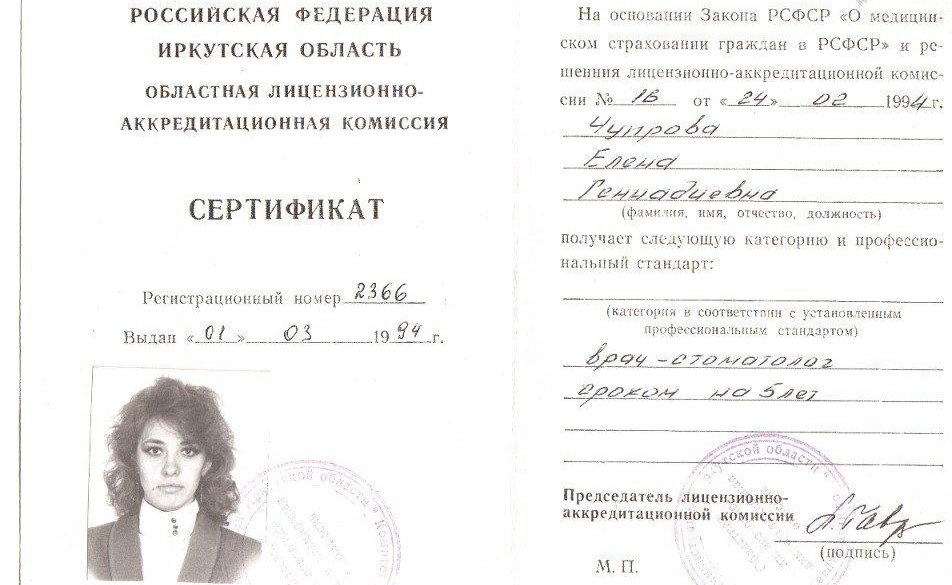 РОССИЙСКАЯ ФЕДЕРАЦИЯ
ИРКУТСКАЯ ОБЛАСТЬ
ОБЛАСТНАЯ ЛИЦЕНЗИОННО-
АККРЕДИТАЦИОННАЯ КОМИССИЯ
СЕРТИФИКАТ
Регистрационный номер 2366
Выдан «01» 03 1994 г.
На основании Закона РСФСР «О медицин-
ском страховании граждан в РСФСР» и ре-
шенния лицензионно-аккредитационной комис-
сии № 16 от «24» 02 1994 г.
Чупрова
Елена
Геннадиевна
(фамилия, имя, отчество, должность)
получает следующую категорию и профессио-
нальный стандарт:
(категория в соответствии с установленным
профессиональным стандартом)
врач-стоматолог
сроком на 5 лет
Председатель лицензионно-
аккредитационной комиссии
(подпись)
М. П.